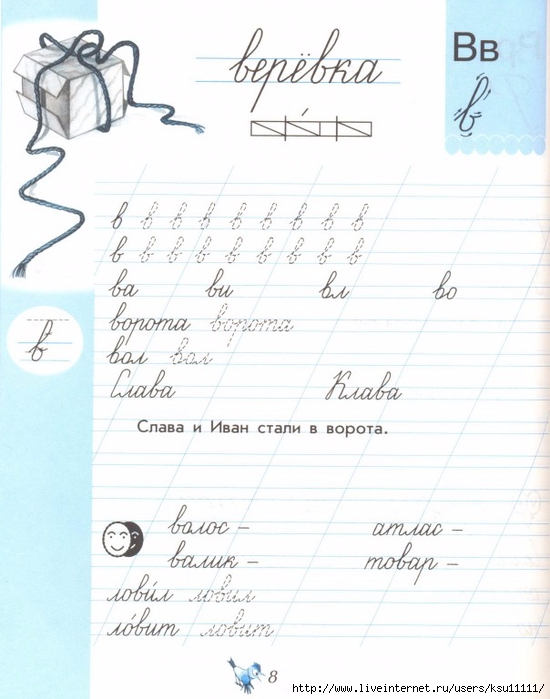 верёвка
Вв
в
в в в в в в в в в
в в в в в в в в в
ва ви вл во
ворота ворота
вол вол
в
Слава Клава
Слава и Иван стали в ворота.
волос – атлас –
валик – товар –
лови́л ловил
ло́вит ловит
8
http://www.liveinternet.ru/users/ksu11111/